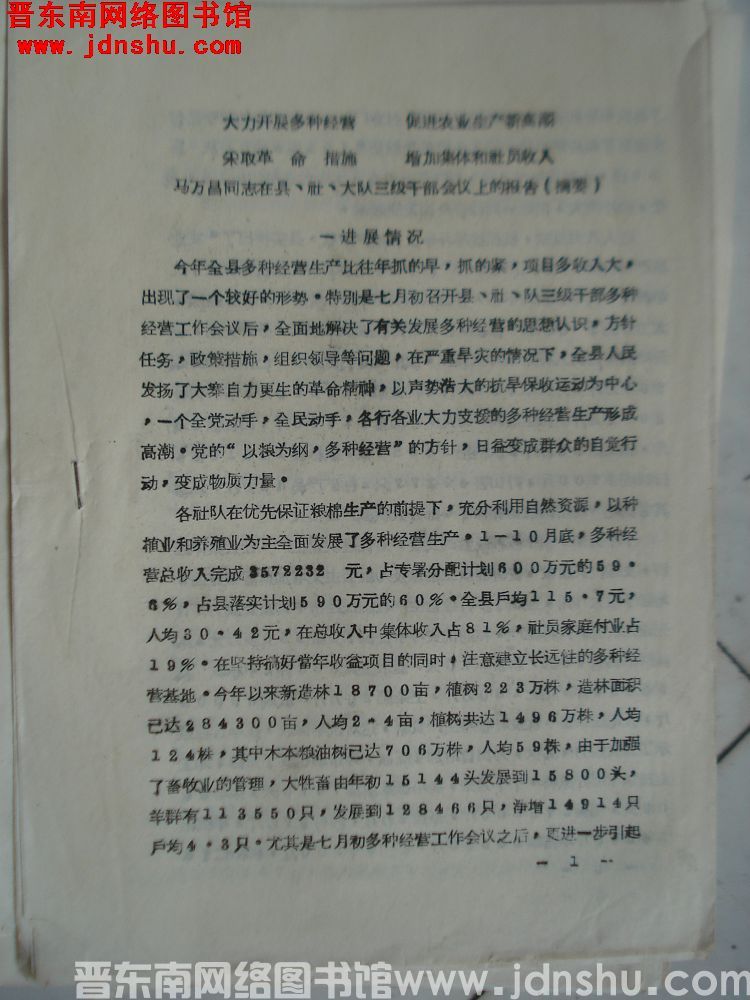 晋东南网络图书馆
www.jdnshu.com
大力开展多种经营 促进农业生产新高潮
采取革 命 措施 增加集体和社员收入
马万昌同志在县、社、大队三级干部会议上的报告(摘要)
一进展情况
今年全县多种经营生产比往年抓的早,抓的紧,项目多收入大,
出现了一个较好的形势。特别是七月初召开县、社、队三级干部多种
经营工作会议后,全面地解决了有关发展多种经营的思想认识,方针
任务,政策措施,组织领导等问题,在严重旱灾的情况下,全县人民
发扬了大寨自力更生的革命精神,以声势浩大的抗旱保收运动为中心
,一个全党动手,全民动手,各行各业大力支援的多种经营生产形成
高潮。党的“以粮为纲,多种经营”的方针,日益变成群众的自觉行
动,变成物质力量。
各社队在优先保证粮棉生产的前提下,充分利用自然资源,以种
植业和养殖业为主全面发展了多种经营生产。1—10月底,多种经
营总收入完成3572232 元,占专署分配计划600万元的59.
6%,占县落实计划590万元的60%。全县户均115.7元,
人均30.42元,在总收入中集体收入占81%,社员家庭付业占
19%。在坚持搞好当年收益项目的同时,注意建立长远性的多种经
营基地。今年以来新造林18700亩,植树223万株,造林面积
已达284300亩,人均2.4亩,植树共达1496万株,人均
124株,其中木本粮油树已达706万株,人均59株,由于加强
了畜牧业的管理,大牲畜由年初15144头发展到15800头,
羊群有113550只,发展到128466只,净增14914只
户均4.3只。尤其是七月初多种经营工作会议之后,更进一步引起
— 1 —
晋东南网络图书馆www.jdnshu.com